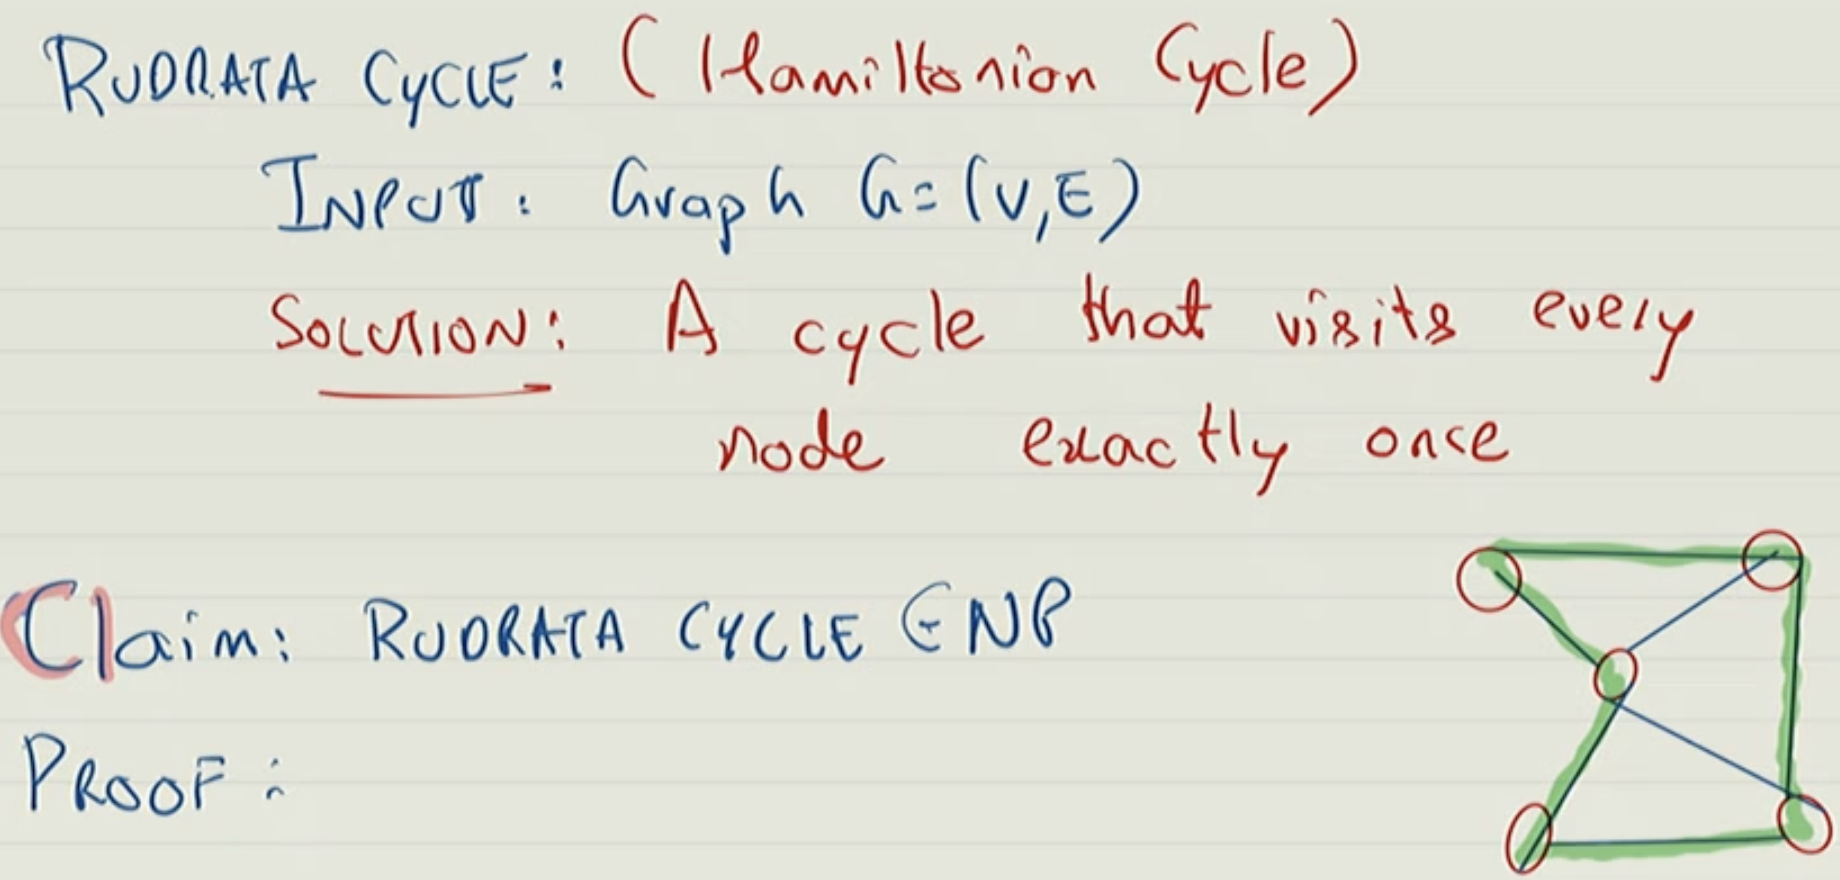 RUDRATA CYCLE: (Hamiltonian Cycle)
INPUT: Graph G=(V,E)
SOLUTION: A cycle that visits every
node exactly once
Claim: RUDRATA CYCLE ∈ NP
PROOF: